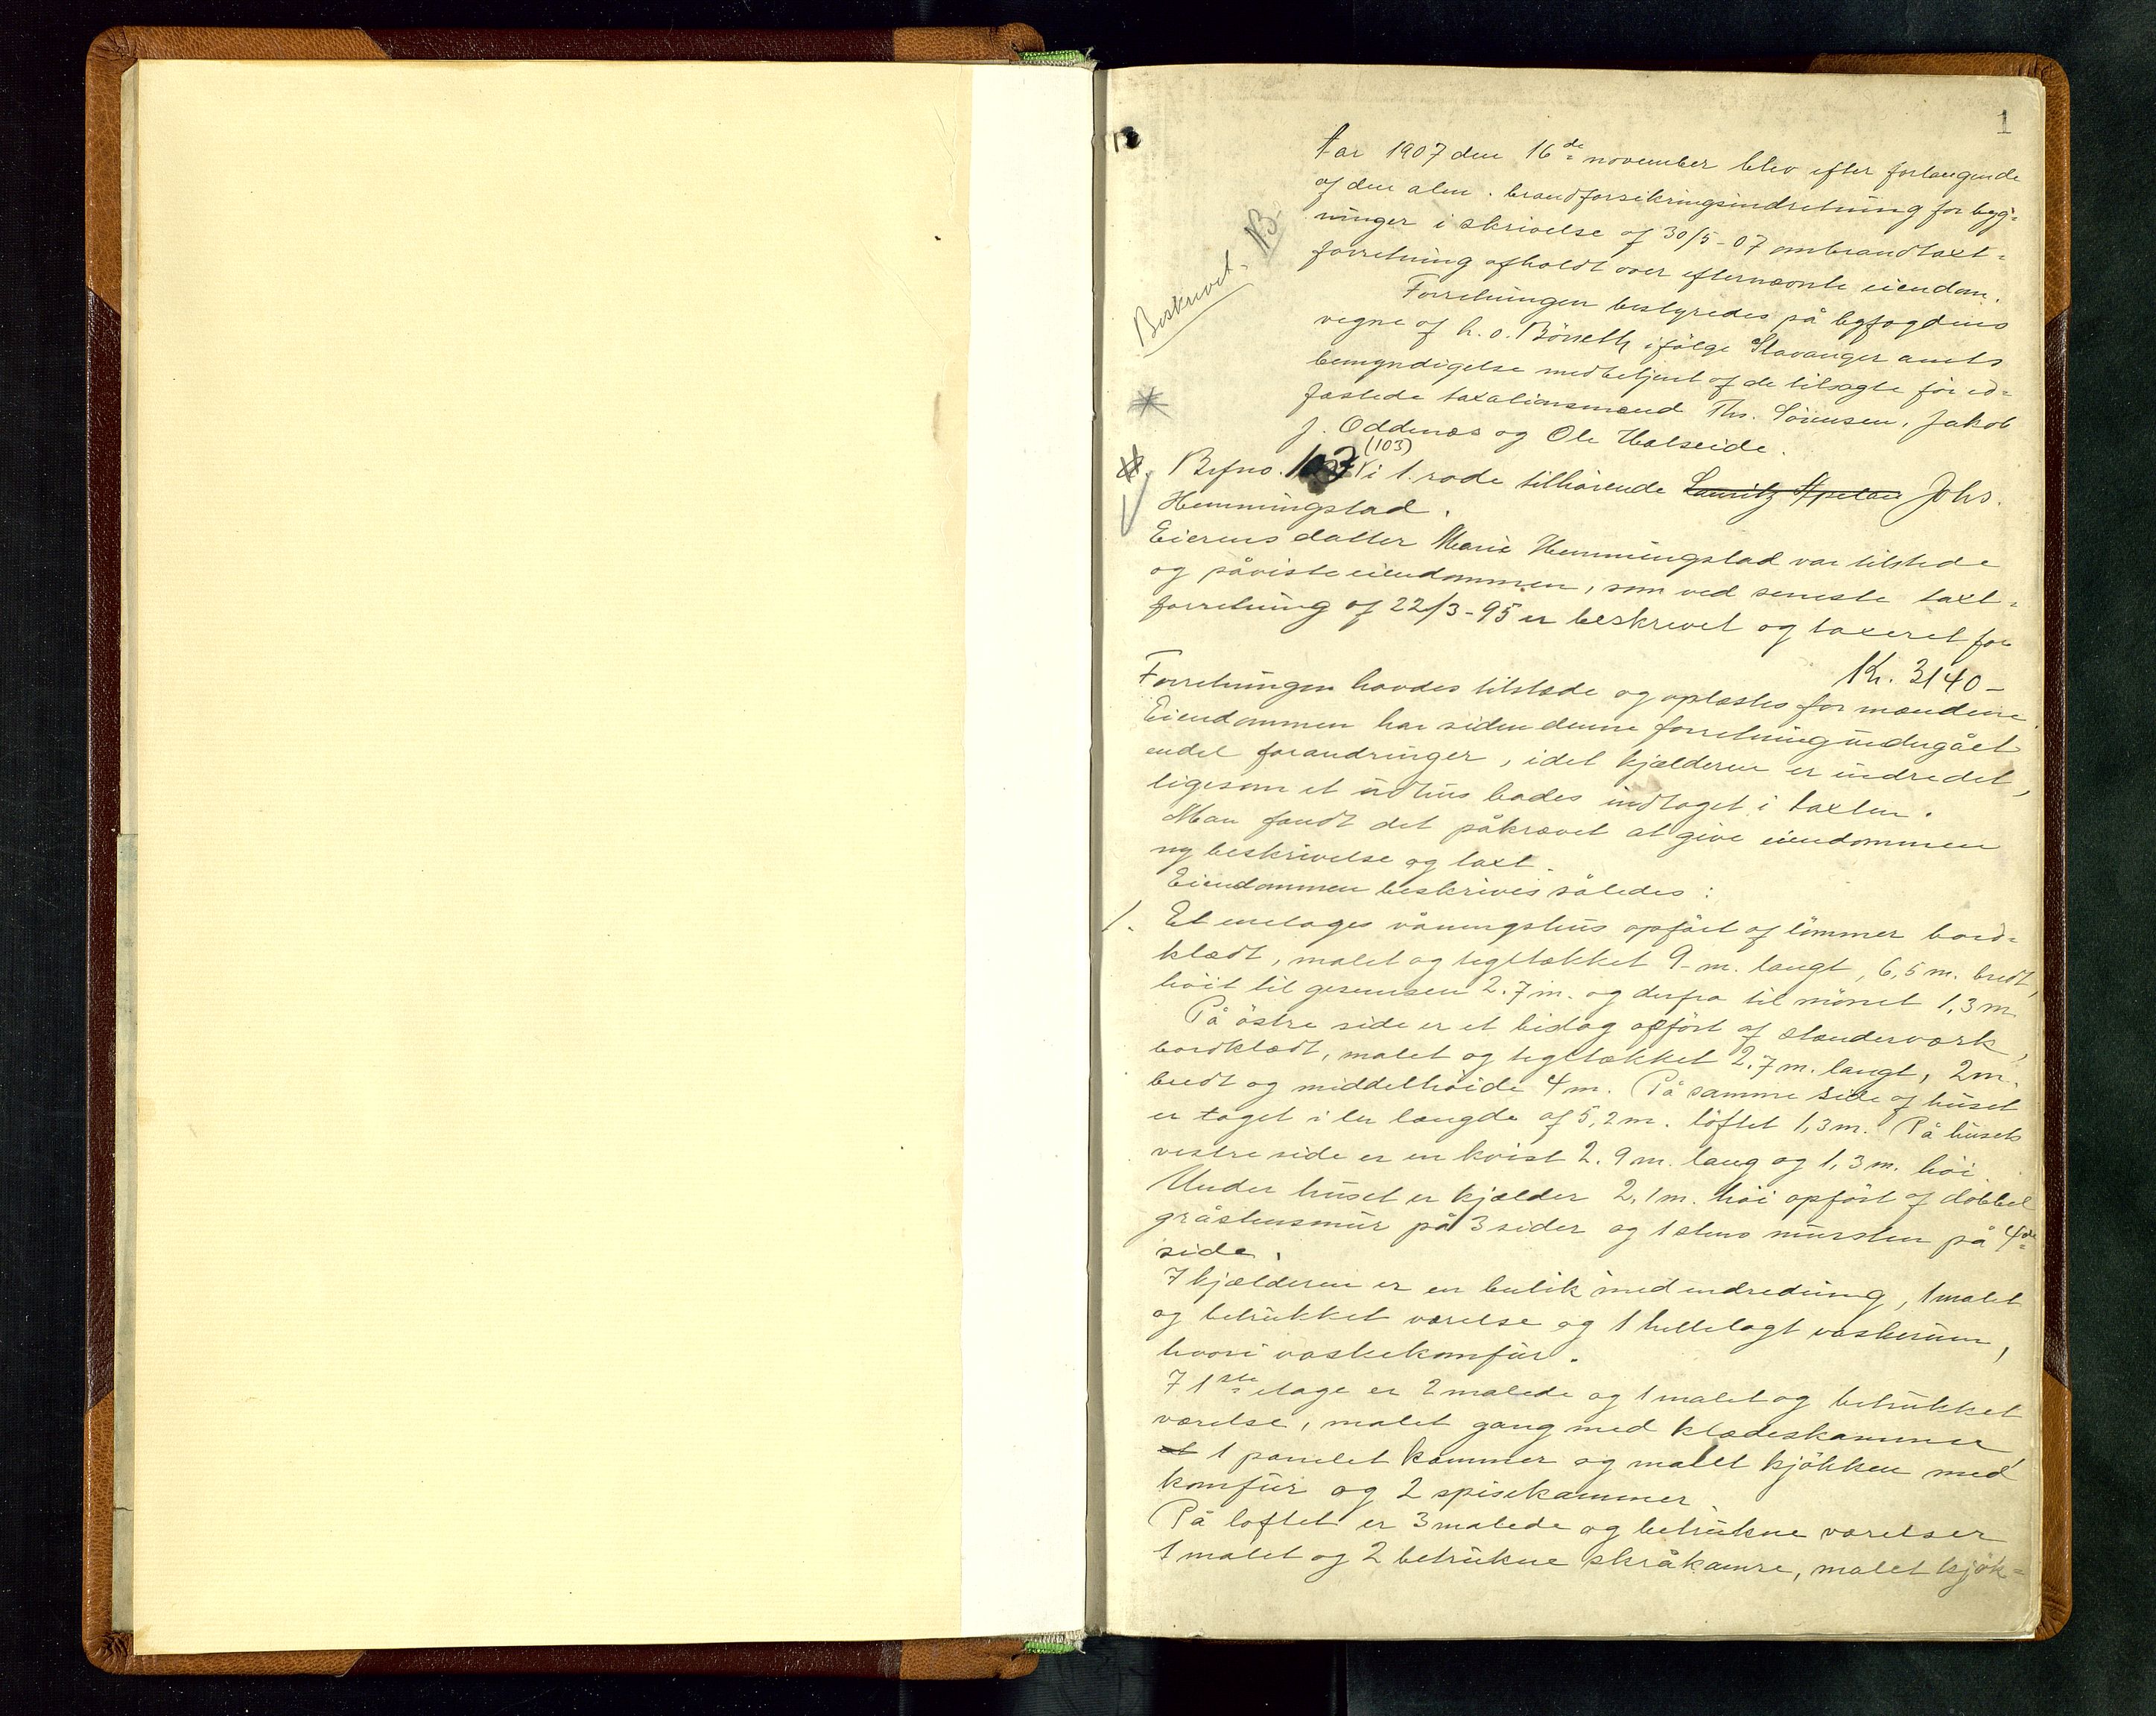 1
Aar 1907 den 16de november blev efter forlangende
af den alm. brandforsikringsindretning for byg=
ninger i skrivelse af 30/5-07 ombrandtaxt=
forretning afholdt over efternævnte eiendom.
Forretningen bestyredes på byfogdens
vegne af h. o. ifölge Stavanger amts
bemyndigelse med betjent af de tilsagte för ed=
fæstede taxationsmænd Ths. Sörensen, Jakob
J. Oddenæs og Ole Halseide.
Beskrevet. NB
(103)
Brfno. 103 i 1. rode tilhörende Lauritz Johs.
Hemmingstad.
Eierens datter Marie Hemmingstad var tilstede
og påviste eiendommen, som ved seneste taxt=
forretning af 22/3-95 er beskrevet og taxeret for
Kr. 3140-
Forretningen havdes tilstede og oplæstes for mændene.
Eiendommen har siden denne forretning undergået
endel forandringer, idet kjælderen er indredet,
ligesom et udhus bades indtaget i taxten.
Man fandt det påkrævet at give eiendommen
ny beskrivelse og taxt.
Eiendommen beskrives således:
1. Et enetages våningshus opfört af tömmer bord=
klædt, malet og tegltækket 9- m. langt, 6,5 m. bredt,
höit til gesemsen 2.7 m. og derfra til mönet 1,3 m.
På östre side er et bislag opfört af stænderværk,
bordklædt, malet og tegltækket 2.7 m. langt, 2 m.
bredt og middelhöide 4 m. På samme side af huset
er taget i len længde af 5,2 m. löftet 1,3 m. På husets
vestre side er en kvist 2.9 m. lang og 1,3 m. höi.
Under huset er kjælder 2,1 m. höi opfört af dobbel
gråstensmur på 3 sider og 1 stens mursten på 4de
side.
I kjælderen er en butik med indredning, 1 malet
og betrukket værelse og 1 hellelagt vaskerum,
hvori vaskekomfur.
I 1ste etage er 2 malede og 1 malet og betrukket
værelse, malet gang med klædeskammer,
et 1 panelet kammer og malet kjökken med
komfur og 2 spisekammer.
På loftet er 3 malede og betrukne værelser
1 malet og 2 betrukne skråkamre, malet kjök=